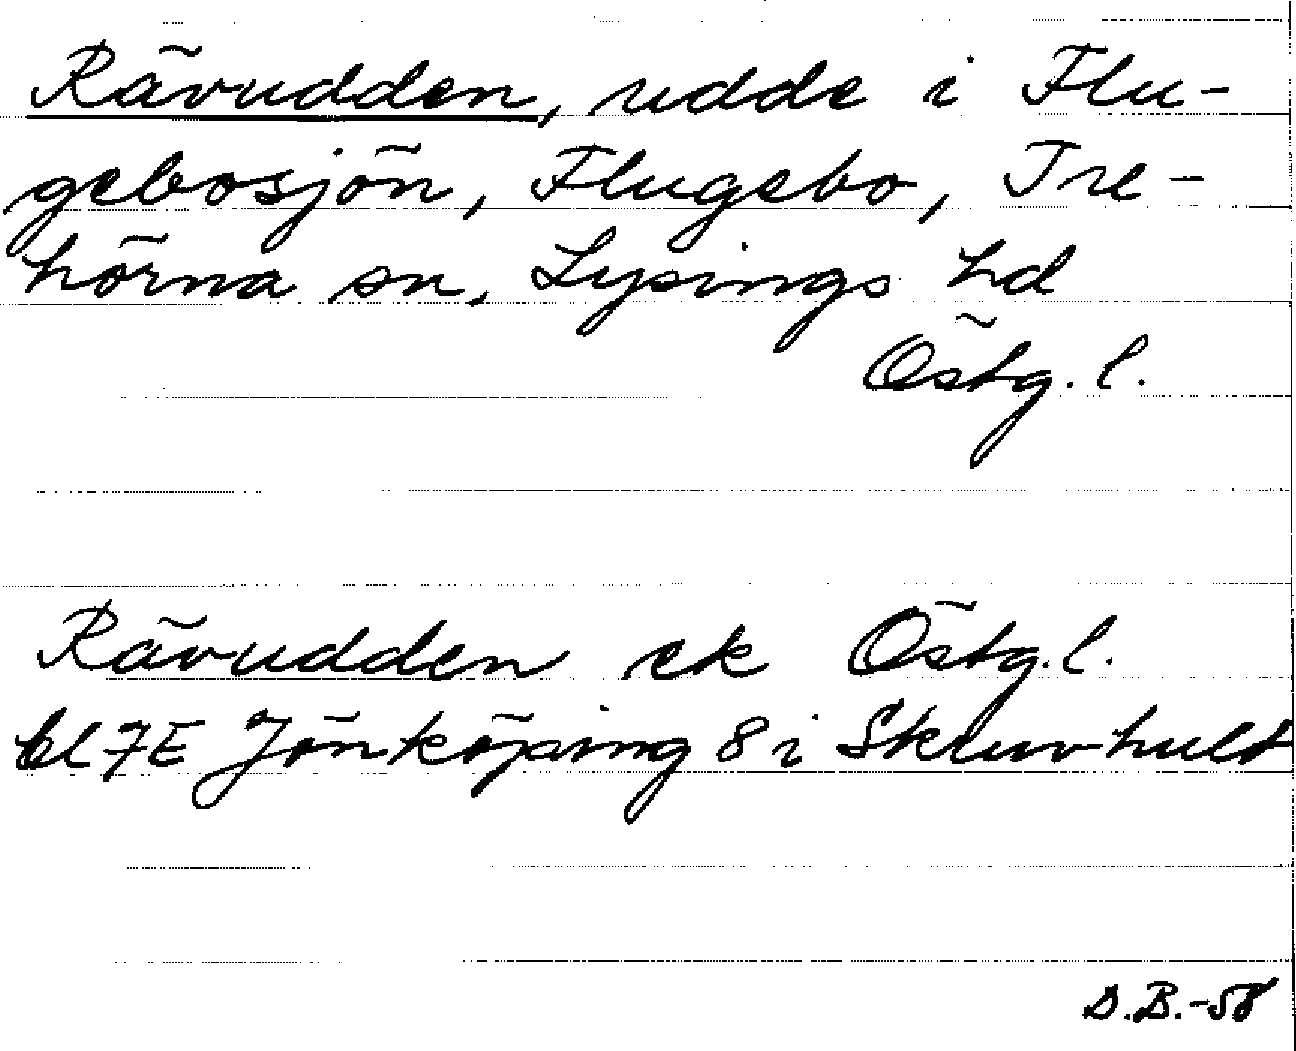 Rävudden, udde i Flu-
gebosjön, Flugebo, Tre-
hörna sn, Lysings hd
Östg. l.
Rävudden ek Östg. l.
bl 7E Jönköping 8 i Skruvhult
D.B.-58